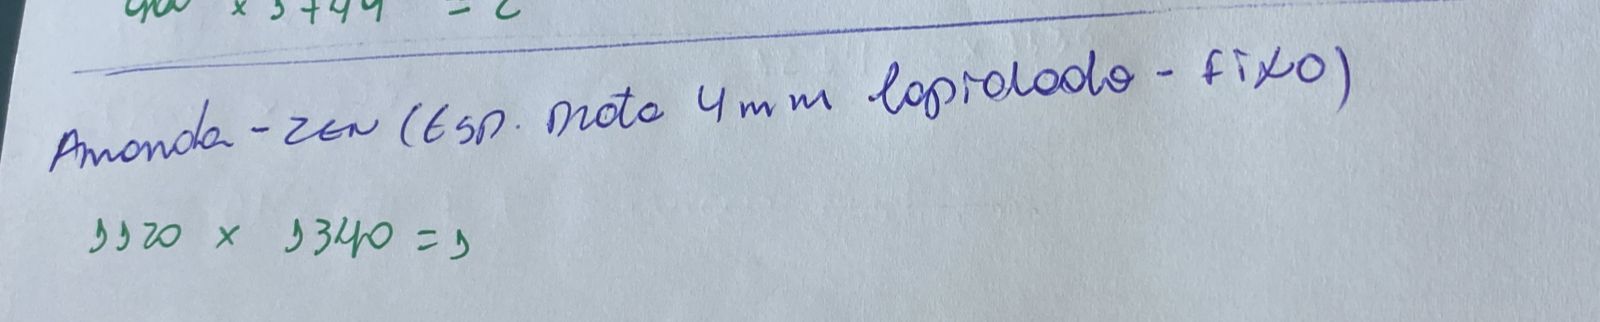 x 1744 = 2
Amanda - ZEN (Esp. prata 4mm lapidado - fixo)
1120 x 1340 = 1